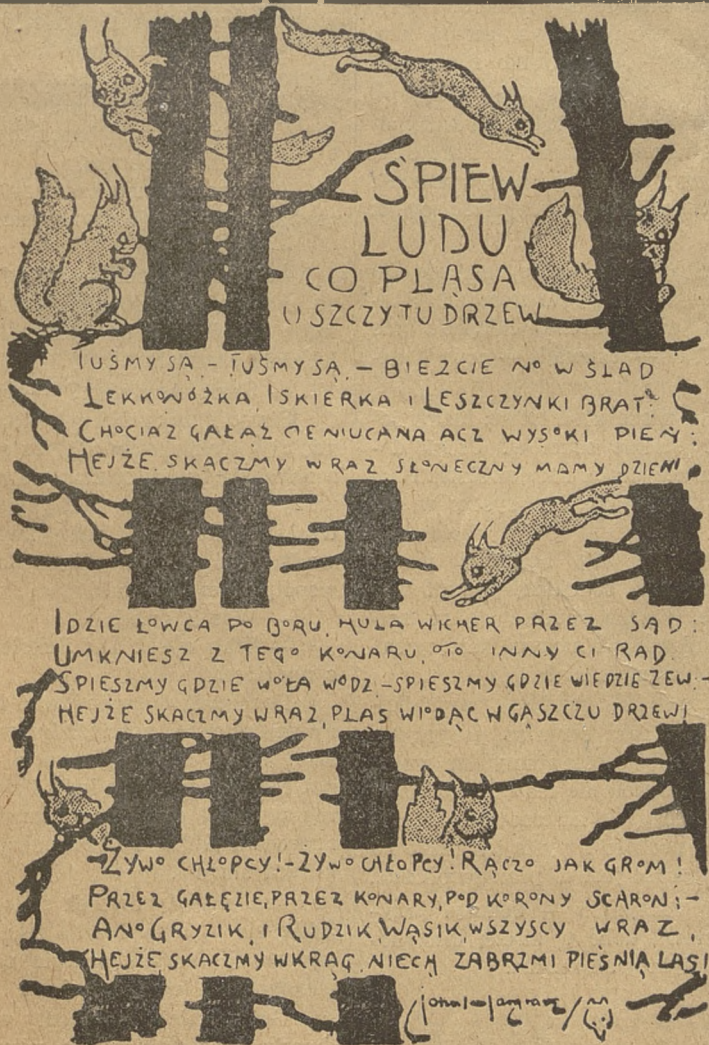 ŚPIEW
LUDU
CO PLĄSA
U SZCZYTU DRZEW
TUŚMY SĄ – TUŚMY SĄ – BIEŻCIE NO W ŚLAD
LEKKONÓŻKA, ISKIERKA I LESZCZYNKI BRAT:
CHOCIAŻ GAŁĄŹ CIENIUCHNA ACZ WYSOKI PIEŃ;
HEJŻE SKACZMY WRAZ SŁONECZNY MAMY DZIEŃ!
IDZIE ŁOWCA DO BORU, HULA WICHER PRZEZ SAD:
UMKNIESZ Z TEGO KONARU, OTO INNY CI RAD
ŚPIESZMY GDZIE WOŁA WÓDZ – SPIESZMY GDZIE WIEDZIE ZEW –
HEJŻE SKACZMY WRAZ, PLĄS WIODĄC W GĄSZCZU DRZEW!
ŻYWO CHŁOPCY! – ŻYWO CHŁOPCY! RĄCZO JAK GROM!
PRZEZ GAŁĘZIE, PRZEZ KONARY, POD KORONY SCHRON; –
ANO GRYZIK, I RUDZIK, WĄSIK, WSZYSCY WRAZ,
HEJŻE, SKACZMY WKRĄG, NIECH ZABRZMI PIEŚNIĄ LAS!